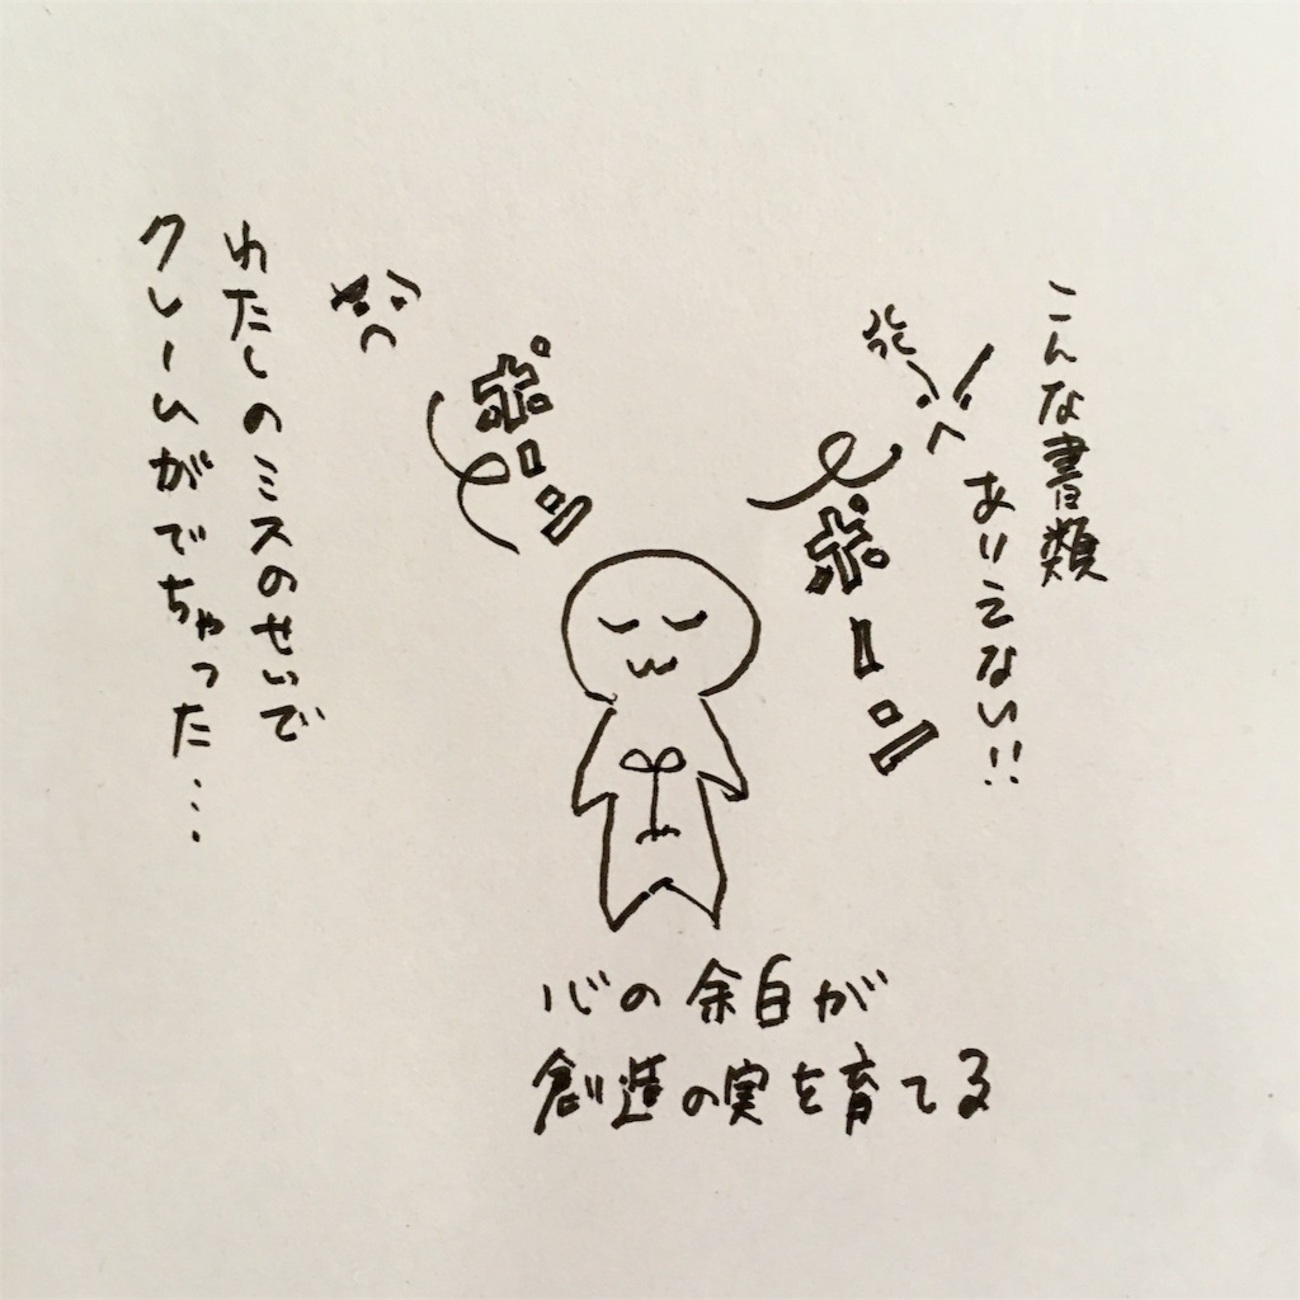 こんな書類
ありえない!!
ポーン
ポーン
わたしのミスのせいで
クレームがでちゃった…
心の余白が
創造の実を育てる